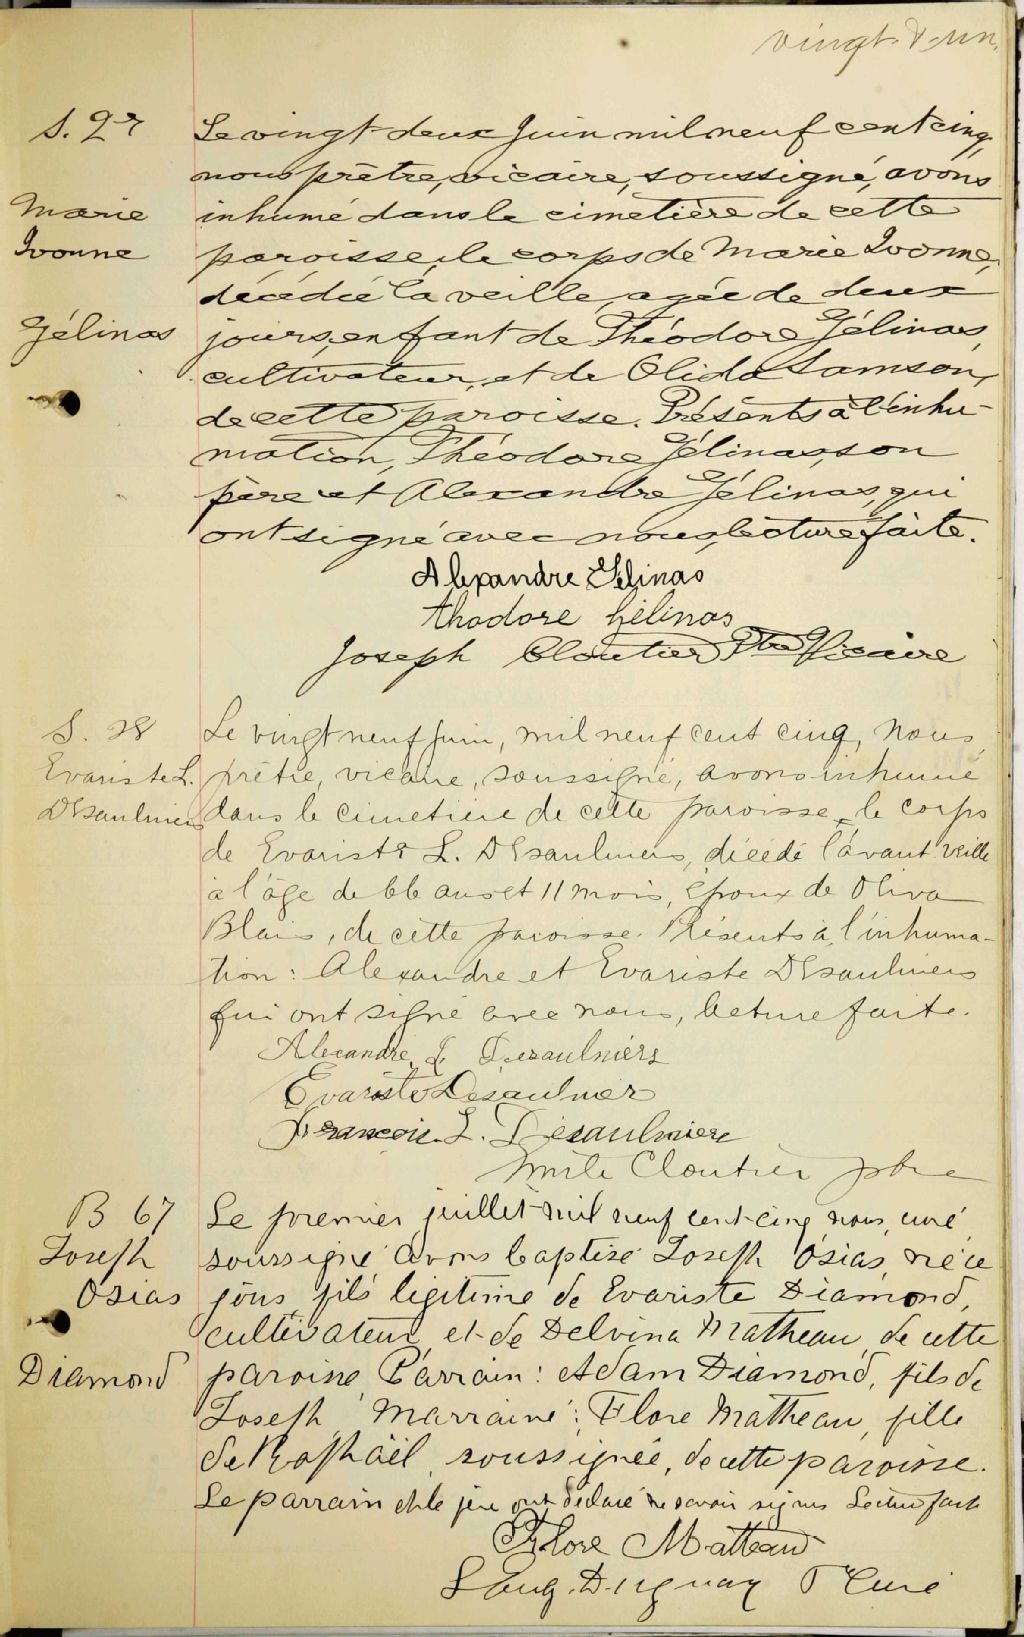 vingt-&-un.
S. 27
Marie
Ivonne
Gélinas
Le vingt-deux Juin mil neuf cent cinq,
nous prêtre, vicaire, soussigné, avons
inhumé dans le cimetière de cette
paroisse, le corps de Marie Ivonne,
décédée la veille, agée de deux
jours, enfant de Théodore Gélinas,
cultivateur, et de Olida Samson,
de cette paroisse. Présents à l'inhu-
mation, Théodore Gélinas, son
père et Alexandre Gélinas, qui
ont signé avec nous, lecture faite.
Alexandre Gélinas
Thodore Gélinas
Joseph Cloutier Ptre Vicaire
S. 28
Evariste L.
Désaulniers
Le vingt neuf juin, mil neuf cent cinq, nous
prêtre, vicaire, soussigné, avons inhumé
dans le cimetière de cette paroisse, le corps
de Evariste L. Désaulniers, décédé l'avant veille
à l'âge de 66 ans et 11 mois, époux de Oliva
Blais, de cette paroisse. Présents à l'inhuma-
tion: Alexandre et Evariste Désaulniers
qui ont signé avec nous, lecture faite.
Alexandre L Desaulniers
Evariste Desaulnier
François. L. Désaulniers
Emile Cloutier ptre
B 67
Joseph
Osias
Diamond
Le premier juillet mil neuf cent-cinq, nous, curé
soussigné avons baptisé Joseph Osias, né ce
jour, fils légitime de Evariste Diamond,
cultivateur, et de Delvina Matheau, de cette
paroisse. Parrain: Adam Diamond, fils de
Joseph, Marraine: Flore Matheau, fille
de Raphaël, soussignée, de cette paroisse.
Le parrain et le père ont déclaré ne savoir signer Lecture faite
Flore Matteau
L Eug. Duguay Ptre Curé